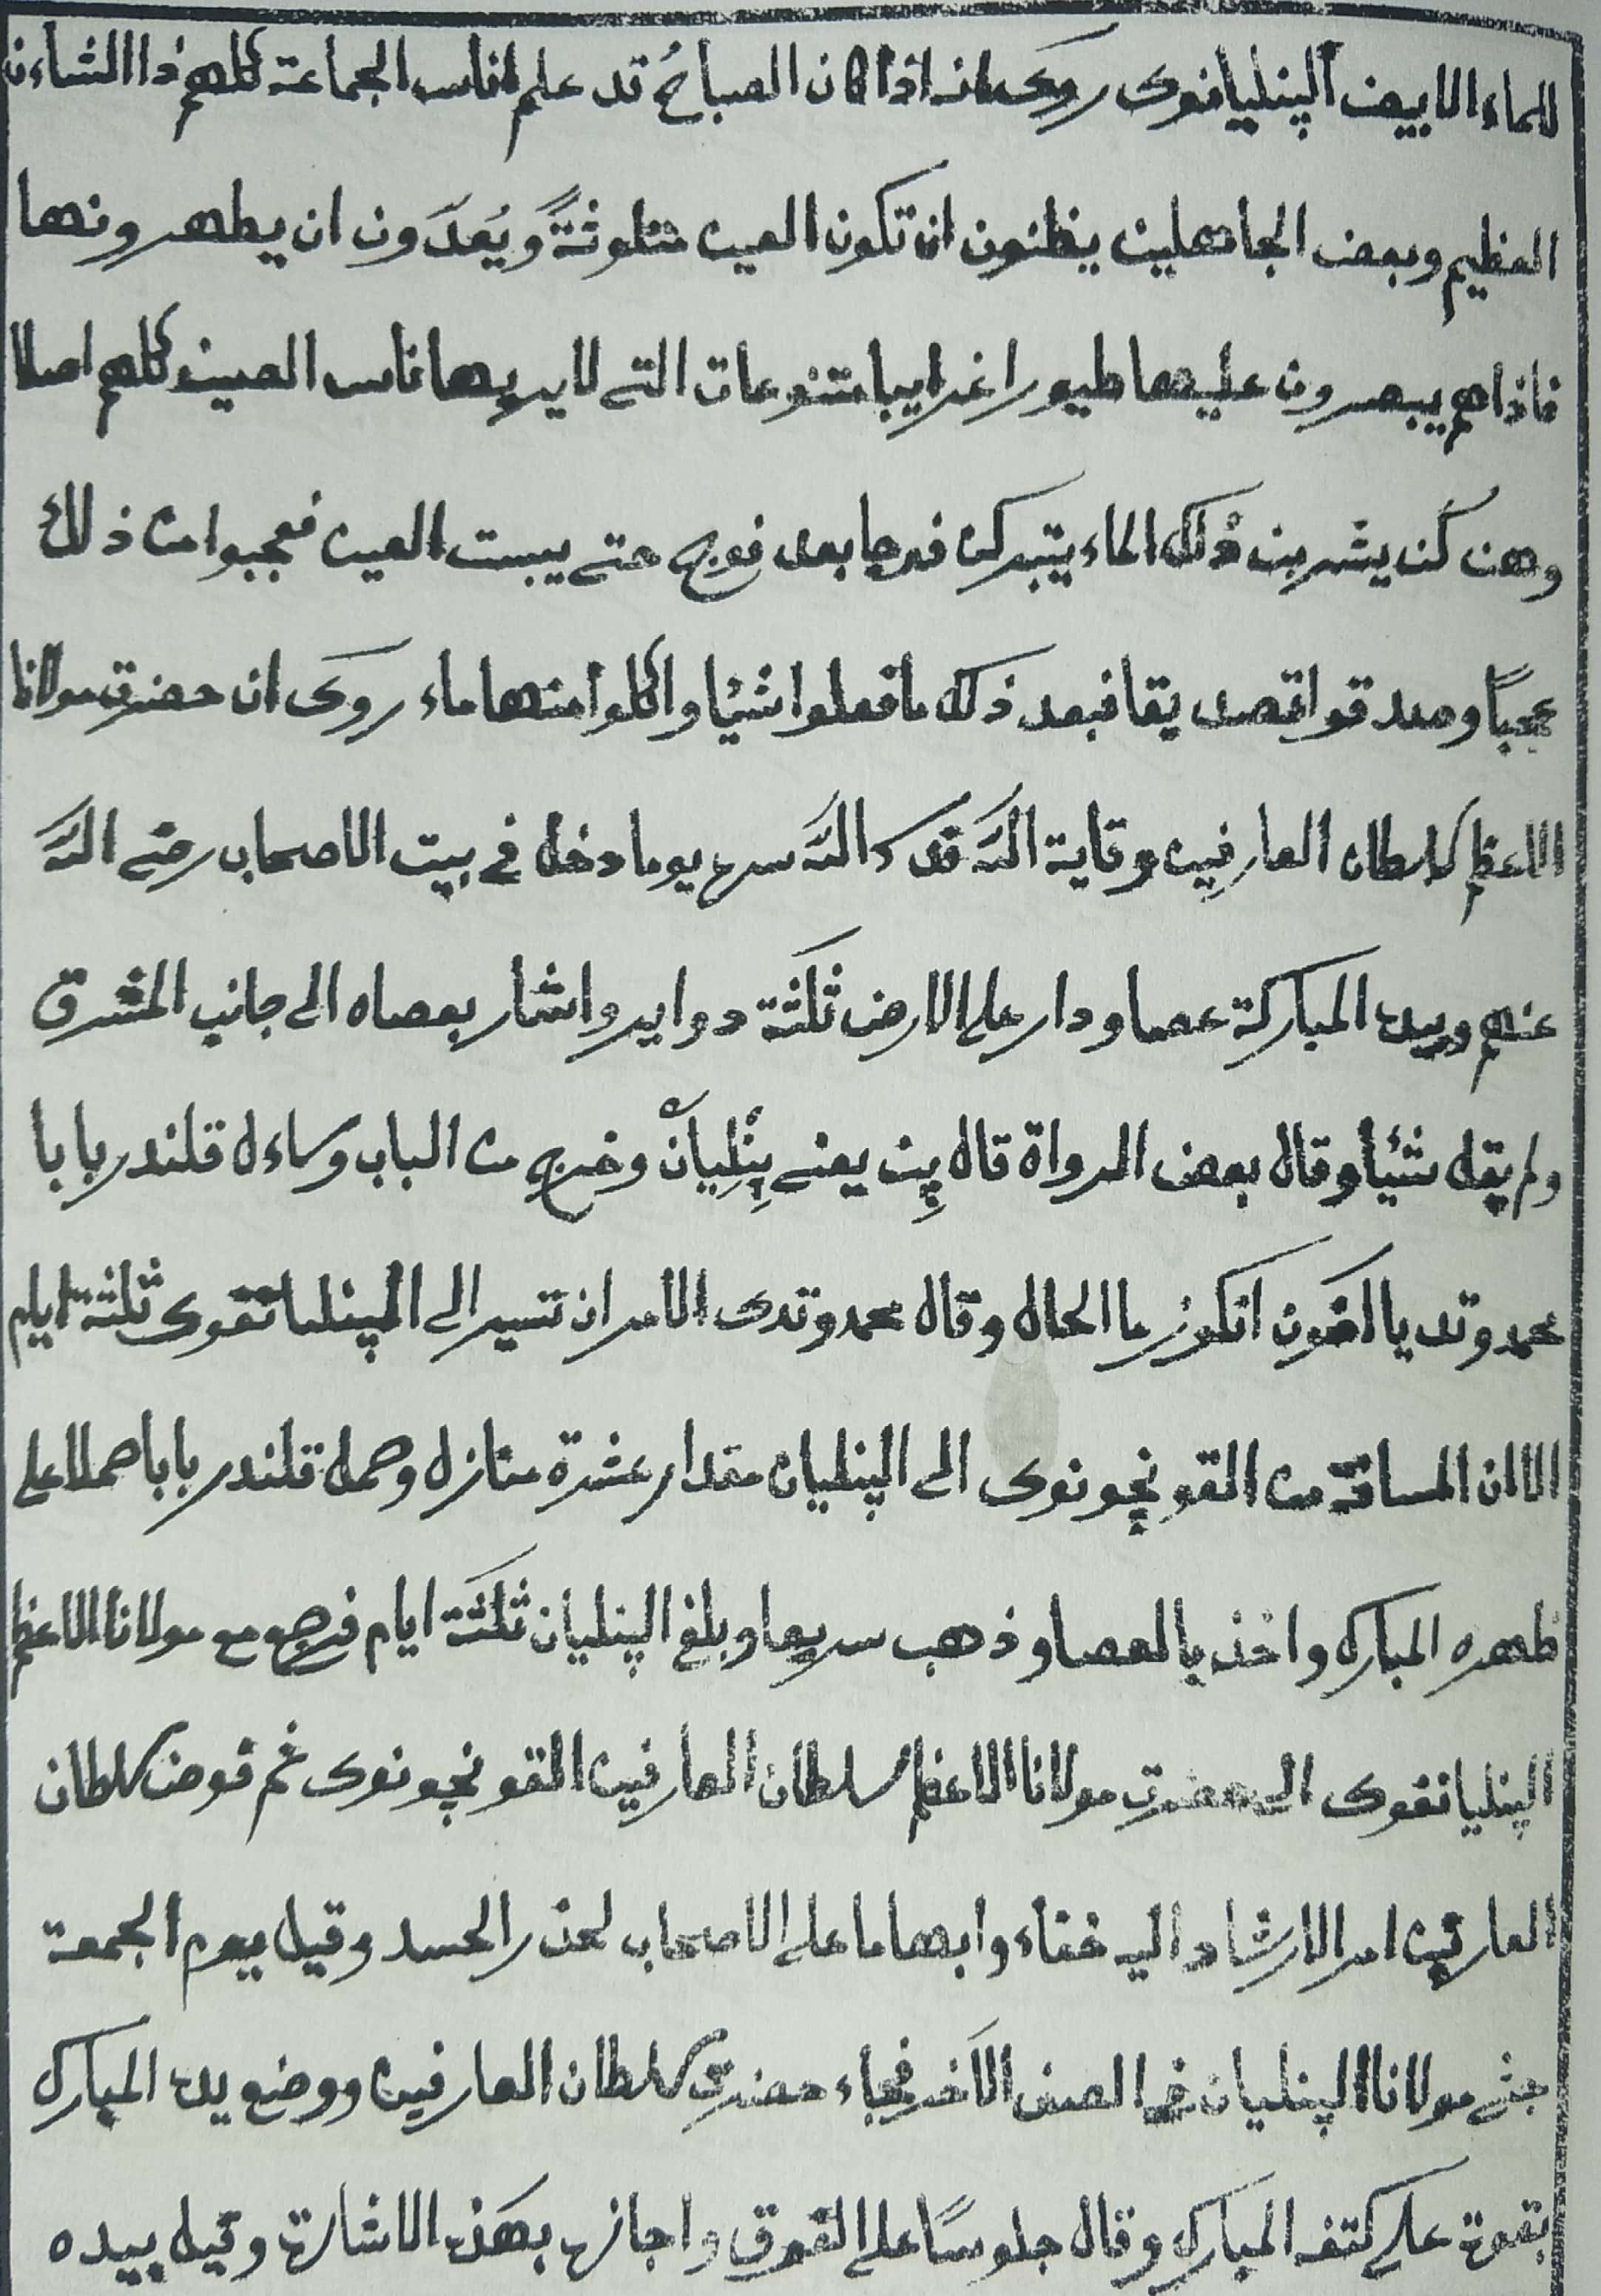 للماء الابيض الپنليانوى روى انه اذا كان الصباحُ قد علم اناس الجماعة كلهم ذا الشاءن
العظيم وبعض الجاهلين يظنون ان تكون العين متلوثةً ويُعدّون ان يطهرونها
فاذاهم يبصرون عليها طيورا غرايبا متنوعات التى لا يريها ناس الصين كلهم اصلا
وهن كن يشربن ذلك الماء يتبركن فوجا بعد فوج حتى يبست العين فعجبوا من ذلك
عجباً وصدقوا تصديقا فبعد ذلك ما فعلوا شيئا واكلوا منها ماء روى ان حضرت مولانا
الاعظم سلطان العارفين وقاية الله قدس الله سره يوما دخل فى بيت الاصحاب رضى الله
عنهم وبيده المباركة عصا ودار على الارض ثلثة دواير واشار بعصاه الى جانب المشرق
ولم يقل شئيا وقال بعض الرواة قال پِن يعنى پِنْلِيانْ وخرج من الباب وساءل قلندر بابا
محمدوتد يا اخون انكوز ما الحال وقال محمدوتدى الامر ان تسير الى الپنليانقوى ثلثة ايام
الا ان المسافة من القونچونوى الى الپنليان مقدار عشرة منازل وحمل قلندر بابا حملا على
ظهره المبارك واخذ بالعصا وذهب سريعا وبلغ الپنليان ثلثة ايام فرجع مع مولانا الاعظم
الپنليانقوى الى حضرت مولانا الاعظم سلطان العارفين القونچونوى ثم فوض سلطان
العارفين امر الارشاد اليه خفاء وابهاما على الاصحاب لحذر الحسد وقيل يوم الجمعة
جثى مولانا الپنليان فى الصف الآخر فجاء حضرت سلطان العارفين ووضع يده المبارك
بقوة على كتفه المبارك وقال جلوسًا على الفوق واجازه بهذه الاشارة وقيل بيده